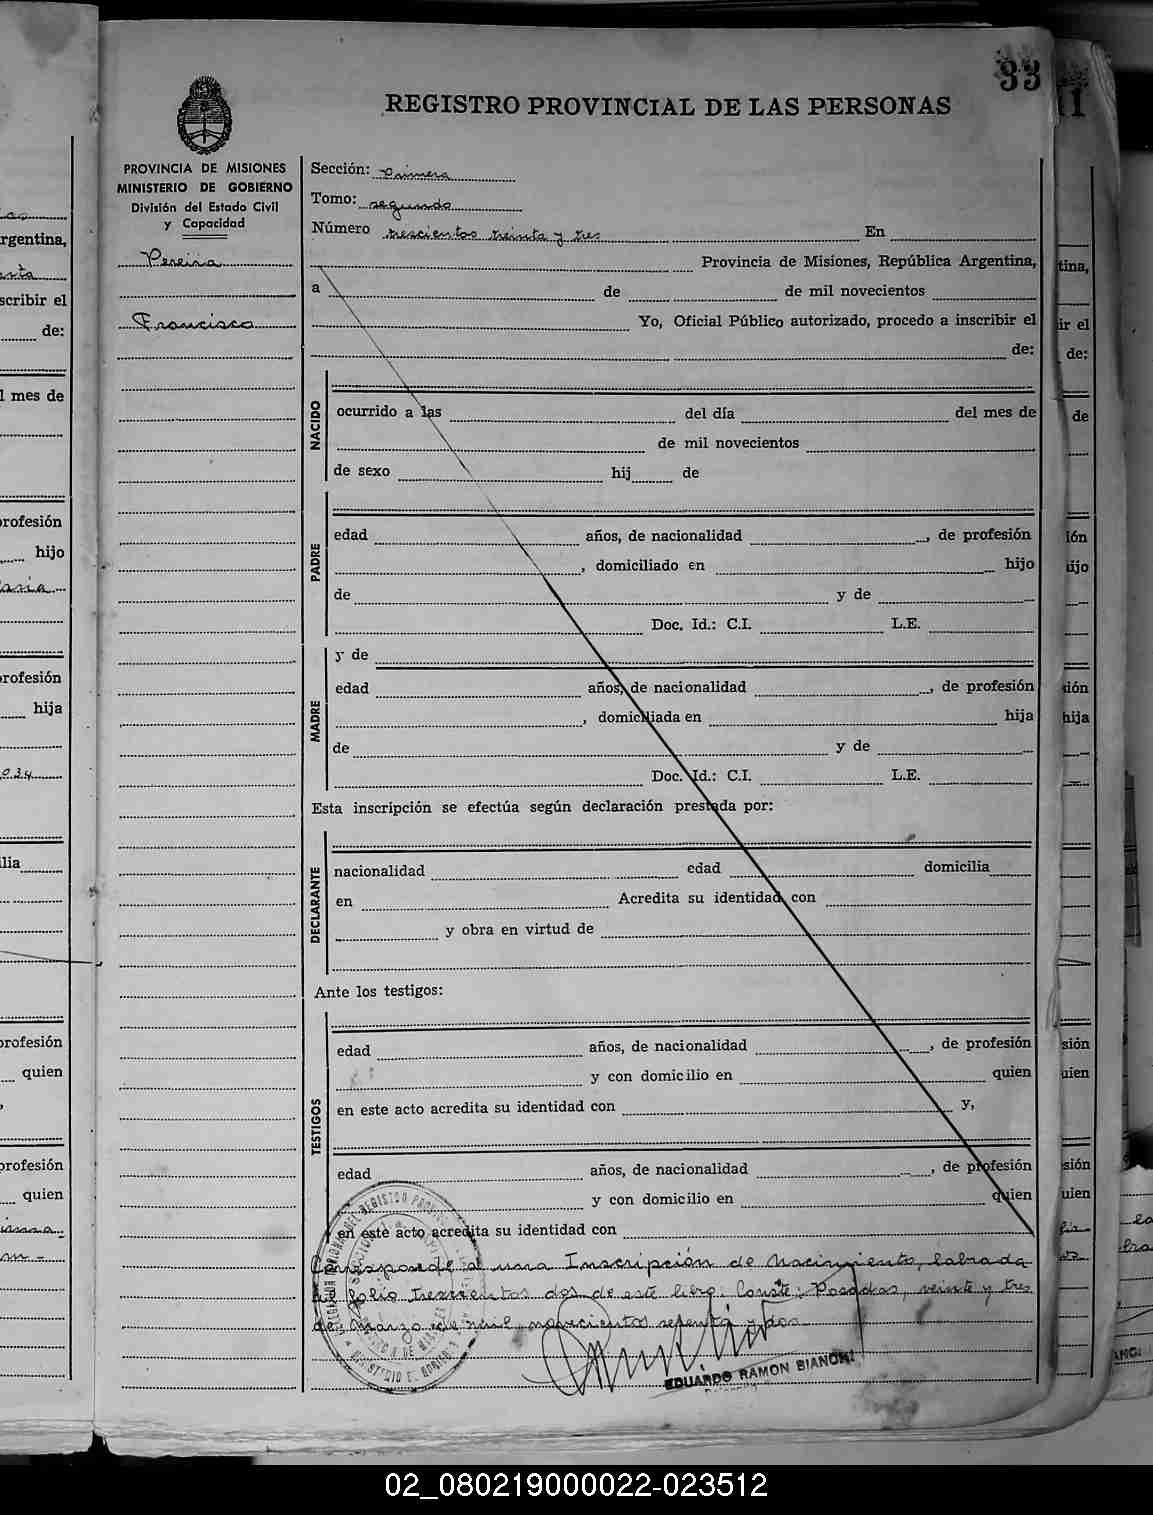 33
REGISTRO PROVINCIAL DE LAS PERSONAS
PROVINCIA DE MISIONES
MINISTERIO DE GOBIERNO
División del Estado Civil
y Capacidad
Pereira
Francisco
Sección: Primera
Tomo: segundo
Número trescientos treinta y tres En
Provincia de Misiones, República Argentina,
a de de mil novecientos
Yo, Oficial Público autorizado, procedo a inscribir el
de:
NACIDO
ocurrido a las del día del mes de
de mil novecientos
de sexo hij de
PADRE
edad años, de nacionalidad , de profesión
, domiciliado en hijo
de y de
Doc. Id.: C.I. L.E.
MADRE
y de
edad años, de nacionalidad , de profesión
, domiciliada en hija
de y de
Doc. Id.: C.I. L.E.
Esta inscripción se efectúa según declaración prestada por:
DECLARANTE
nacionalidad edad domicilia
en Acredita su identidad con
y obra en virtud de
Ante los testigos:
TESTIGOS
edad años, de nacionalidad , de profesión
y con domicilio en quien
en este acto acredita su identidad con y,
edad años, de nacionalidad , de profesión
y con domicilio en quien
en este acto acredita su identidad con
Corresponde a una Inscripción de Nacimiento, labrada
al folio trescientos dos de este libro. Conste: Posadas, veinte y tres
de Marzo de mil novecientos setenta y dos
EDUARDO RAMON BIANCHI
02_080219000022-023512